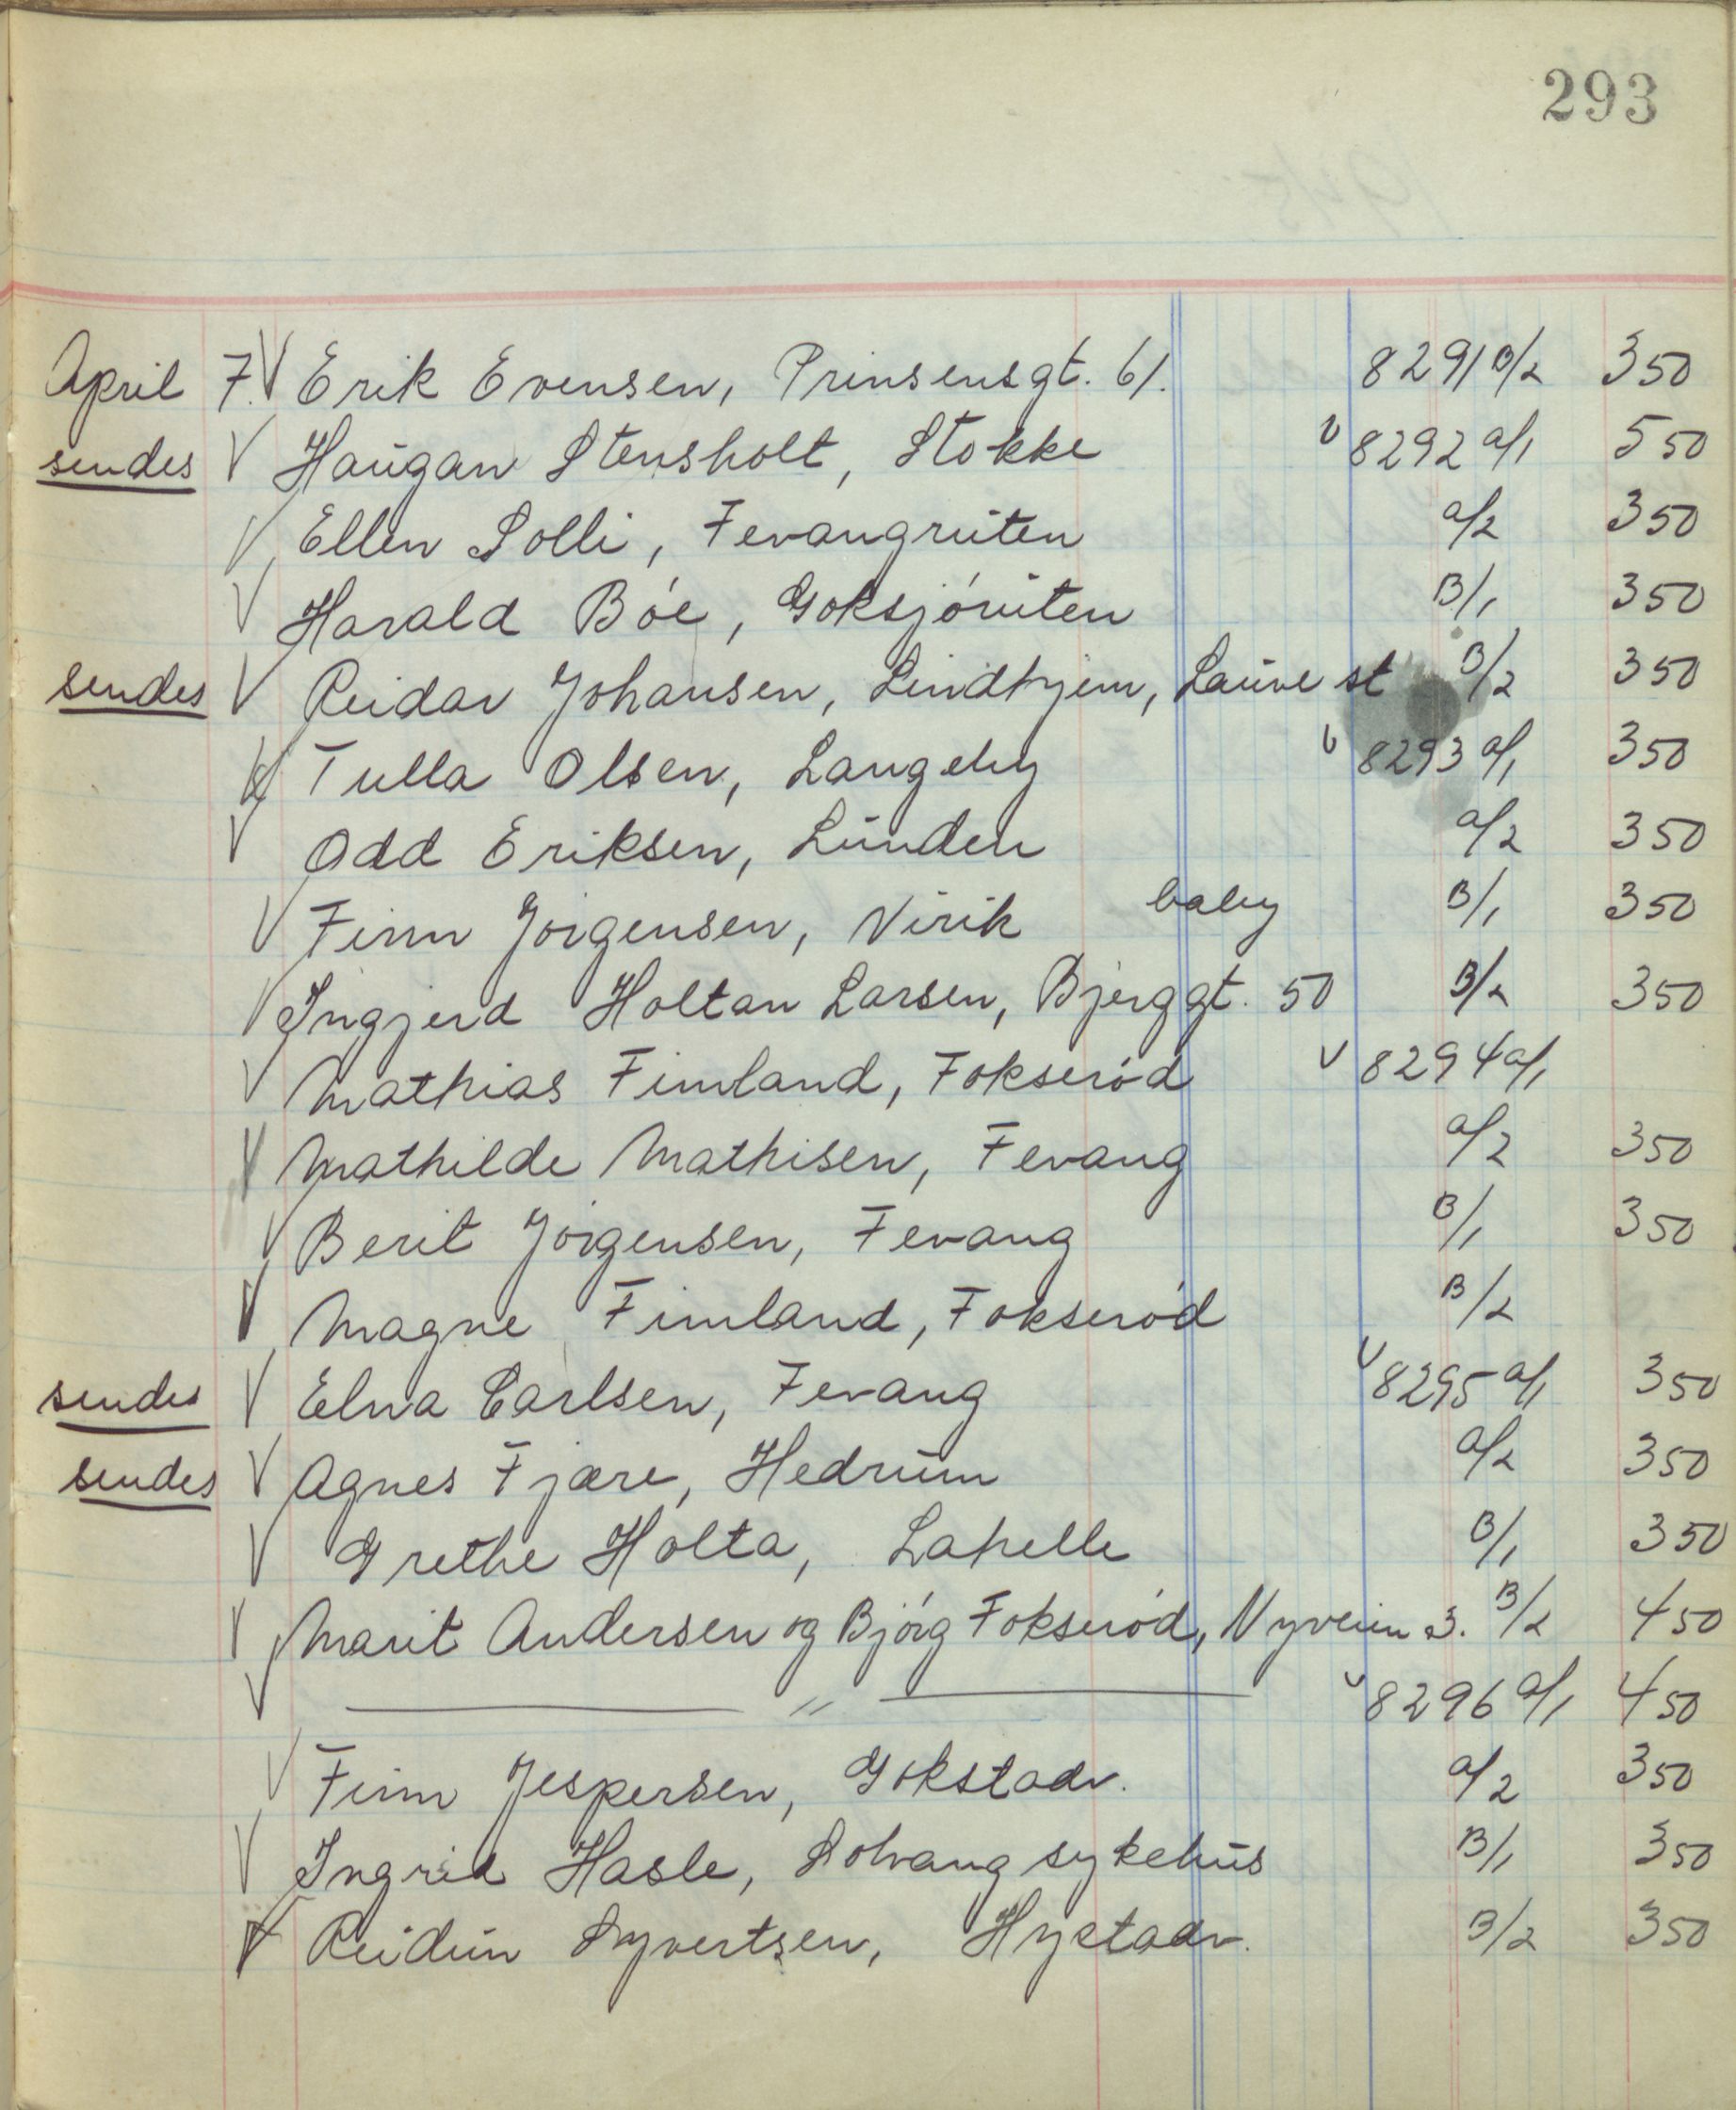 293
April 7. V Erik Evensen, Prinsensgt. 61. 8291 B/2 350
sendes V Haugan Stensholt, Stokke V 8292 a/1 550
V Ellen Solli, Fevangruten a/2 350
V Harald Bóe, Goksjóruten B/1 350
sendes V Reidar Johansen, Lindhjem, Lauve st B/2 350
V Tulla Olsen, Langeby V 8293 a/1 350
V Odd Eriksen, Lunden a/2 350
V Finn Jórgensen, Virik baby B/1 350
V Ingjerd Holtan Larsen, Bjerggt. 50 B/2 350
V Mathias Fimland, Fokseród V 8294 a/1
V Mathilde Mathisen, Fevang a/2 350
V Berit Jórgensen, Fevang B/1 350
V Magne Fimland, Fokseród B/2
sendes V Elna Carlsen, Fevang V 8295 a/1 350
sendes V Agnes Fjære, Hedrum a/2 350
V Grethe Holta, Lahelle B/1 350
V Marit Andersen og Bjórg Fokseród, Nyveien 3. B/2 450
V — " — V 8296 a/1 450
V Finn Jespersen, Gokstadv. a/2 350
V Ingrid Hasle, Solvang sykehus B/1 350
V Reidun Syvertsen, Hystadv. B/2 350